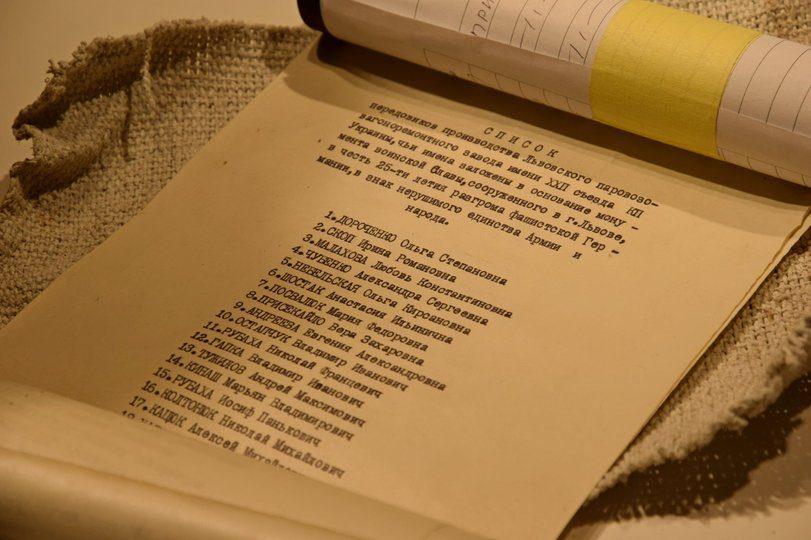 СПИСОК
передовиков производства Львовского паровозо-
вагоноремонтного завода имени XXП съезда КП
Украины, чьи имена заложены в основание мону -
мента воинской Славы, сооруженного в г.Львове,
в честь 25-ти летия разгрома фашистской Гер -
мании, в знак нерушимого единства Армии и
народа.
1.ДОРОЧЕНКО Ольга Степановна
2.СКОП Ирина Романовна
3.МАЛАХОВА Любовь Константиновна
4.ЧУБЕНКО Александра Сергеевна
5.НЕБЕЛЬСКАЯ Ольга Кирсановна
6.ШОСТАК Анастасия Ильинична
7.ПОСВАЛЮК Мария Федоровна
8.ПРИСЕКАЙЛО Вера Захаровна
9.АНДРЕЕВА Евгения Александровна
10.ОСТАПЧУК Владимир Иванович
11.РУБАХА Николай Францевич
12.ГАПКА Владимир Иванович
13.ТУЖИЛОВ Андрей Максимович
14.КИНАШ Марьян Владимирович
15.РУБАХА Иосиф Панькович
16.КОЛТОНЮК Николай Михайлович
17.КАЦЮК Алексей